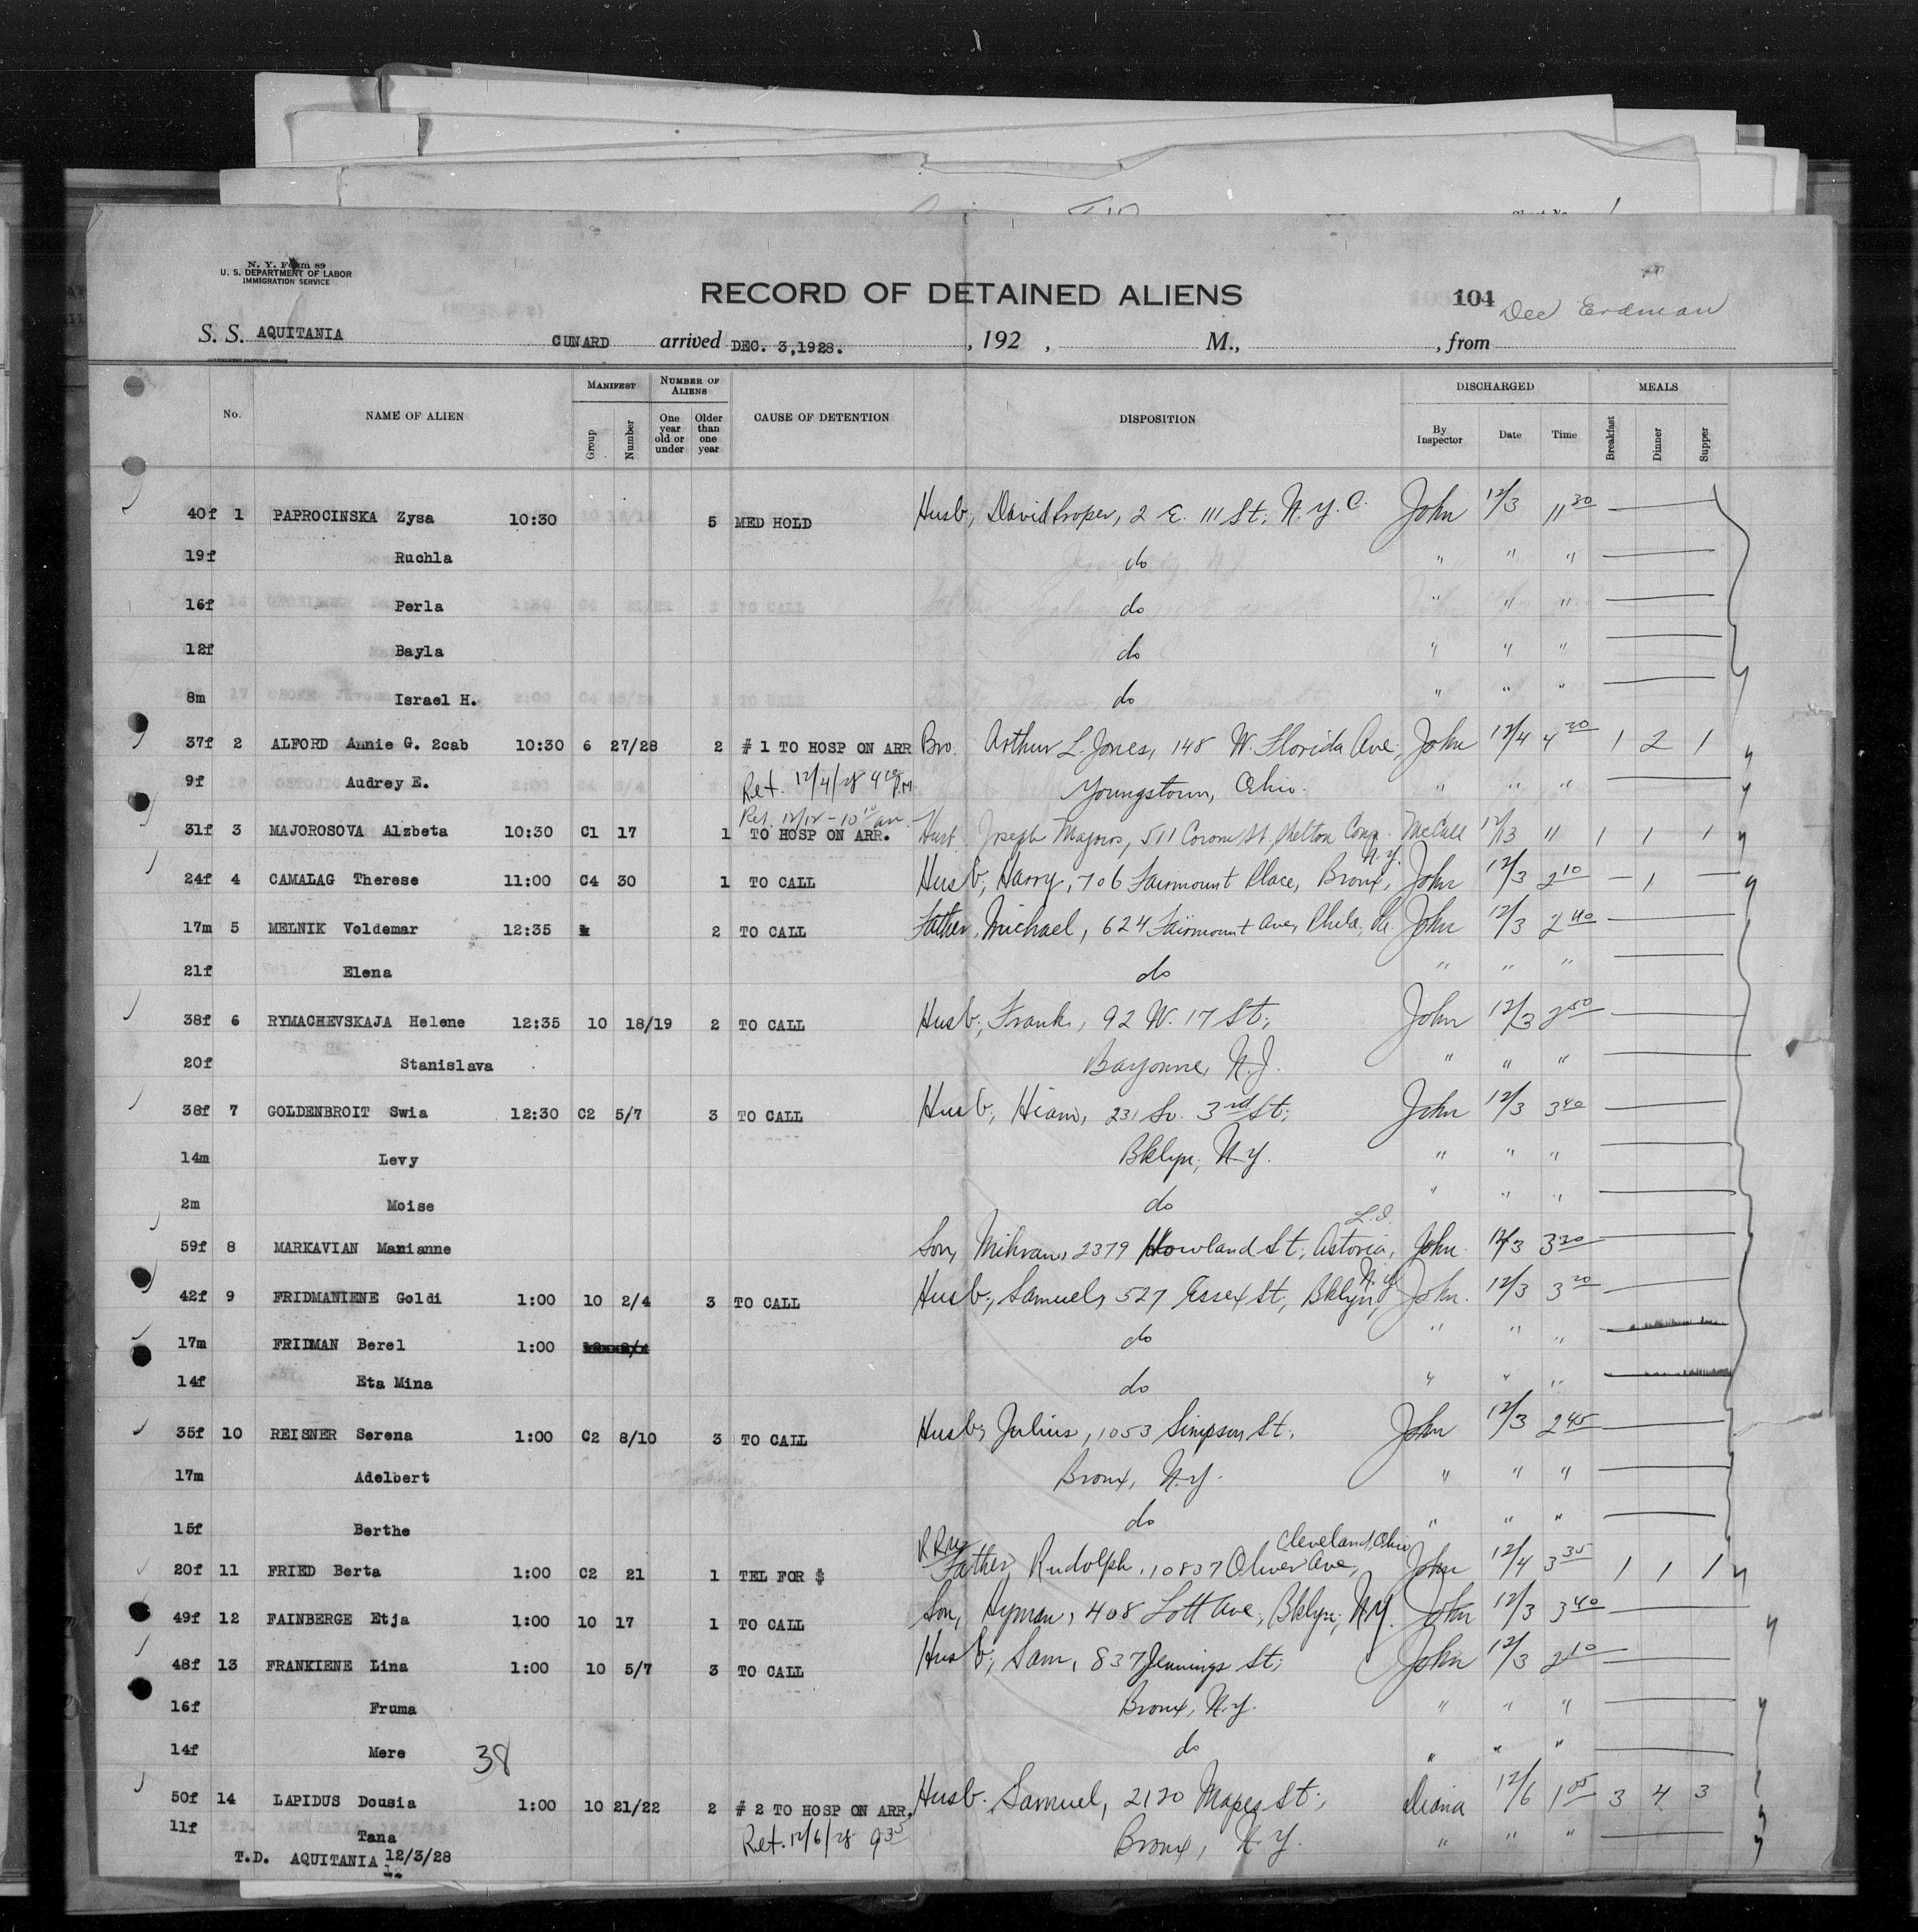 N. Y. Form 89
U. S. DEPARTMENT OF LABOR
IMMIGRATION SERVICE
RECORD OF DETAINED ALIENS
104
Dec Erdman
S. S. AQUITANIA CUNARD arrived DEC. 3,1928. , 192 , M., , from
MANIFEST NUMBER OF ALIENS DISCHARGED MEALS
No. NAME OF ALIEN Group Number One year old or under Older than one year CAUSE OF DETENTION DISPOSITION By Inspector Date Time Breakfast Dinner Supper
40f 1 PAPROCINSKA Zysa 10:30 5 MED HOLD Husb, David Proper, 2 E. 111 St, N.Y.C. John 12/3 11 30
19f Ruchla do " " "
16f Perla do " " "
12f Bayla do " " "
8m Israel H. do " " "
37f 2 ALFORD Annie G. 2cab 10:30 6 27/28 2 # 1 TO HOSP ON ARR Bro. Arthur L. Jones, 148 W. Florida Ave. John 12/4 4 20 1 2 1
9f Audrey E. Ret. 12/4/28 4 10 P.M. Youngstown, Ohio. " " "
Ret. 12/12 - 10 10 am
31f 3 MAJOROSOVA Alzbeta 10:30 C1 17 1 TO HOSP ON ARR. Husb Joseph Majoros, 511 Corom St. Shelton Conn. McCall 12/13 11 1 1 1
24f 4 CAMALAG Therese 11:00 C4 30 1 TO CALL Husb, Harry, 706 Fairmount Place, Bronx, N.Y. John 12/3 2 10 1
17m 5 MELNIK Voldemar 12:35 2 TO CALL Father, Michael, 624 Fairmount Ave, Phila, Pa. John 12/3 2 40
21f Elena do " " "
38f 6 RYMACHEVSKAJA Helene 12:35 10 18/19 2 TO CALL Husb, Frank, 92 W. 17 St, John 12/3 2 50
20f Stanislava Bayonne, N.J. " " "
38f 7 GOLDENBROIT Swia 12:30 C2 5/7 3 TO CALL Husb, Hiam, 231 So. 3rd St, John 12/3 3 40
14m Levy Bklyn, N.Y. " " "
2m Moise do " " "
59f 8 MARKAVIAN Marianne Son, Mihran, 2379 Howland St, Astoria, L.I. John 12/3 3 30
42f 9 FRIDMANIENE Goldi 1:00 10 2/4 3 TO CALL Husb, Samuel, 527 Essex St, Bklyn, N.Y. John 12/3 3 20
17m FRIDMAN Berel 1:00 do " " "
14f Eta Mina do " " "
35f 10 REISNER Serena 1:00 C2 8/10 3 TO CALL Husb, Julius, 1053 Simpson St, John 12/3 2 45
17m Adelbert Bronx, N.Y. " " "
15f Berthe do " " "
20f 11 FRIED Berta 1:00 C2 21 1 TEL FOR $ Father, Rudolph, 10837 Oliver Ave, Cleveland, Ohio John 12/4 3 35 1 1 1
49f 12 FAINBERGE Etja 1:00 10 17 1 TO CALL Son, Hyman, 408 Lott Ave, Bklyn, N.Y. John 12/3 3 40
48f 13 FRANKIENE Lina 1:00 10 5/7 3 TO CALL Husb, Sam, 837 Jennings St, John 12/3 2 10
16f Fruma Bronx, N.Y. " " "
14f Mere 38 do " " "
50f 14 LAPIDUS Dousia 1:00 10 21/22 2 # 2 TO HOSP ON ARR. Husb. Samuel, 2120 Mapes St, Diana 12/6 1 05 3 4 3
11f Tana Ret. 12/6/28 9 35 Bronx, N.Y. " " "
T.D. AQUITANIA 12/3/28